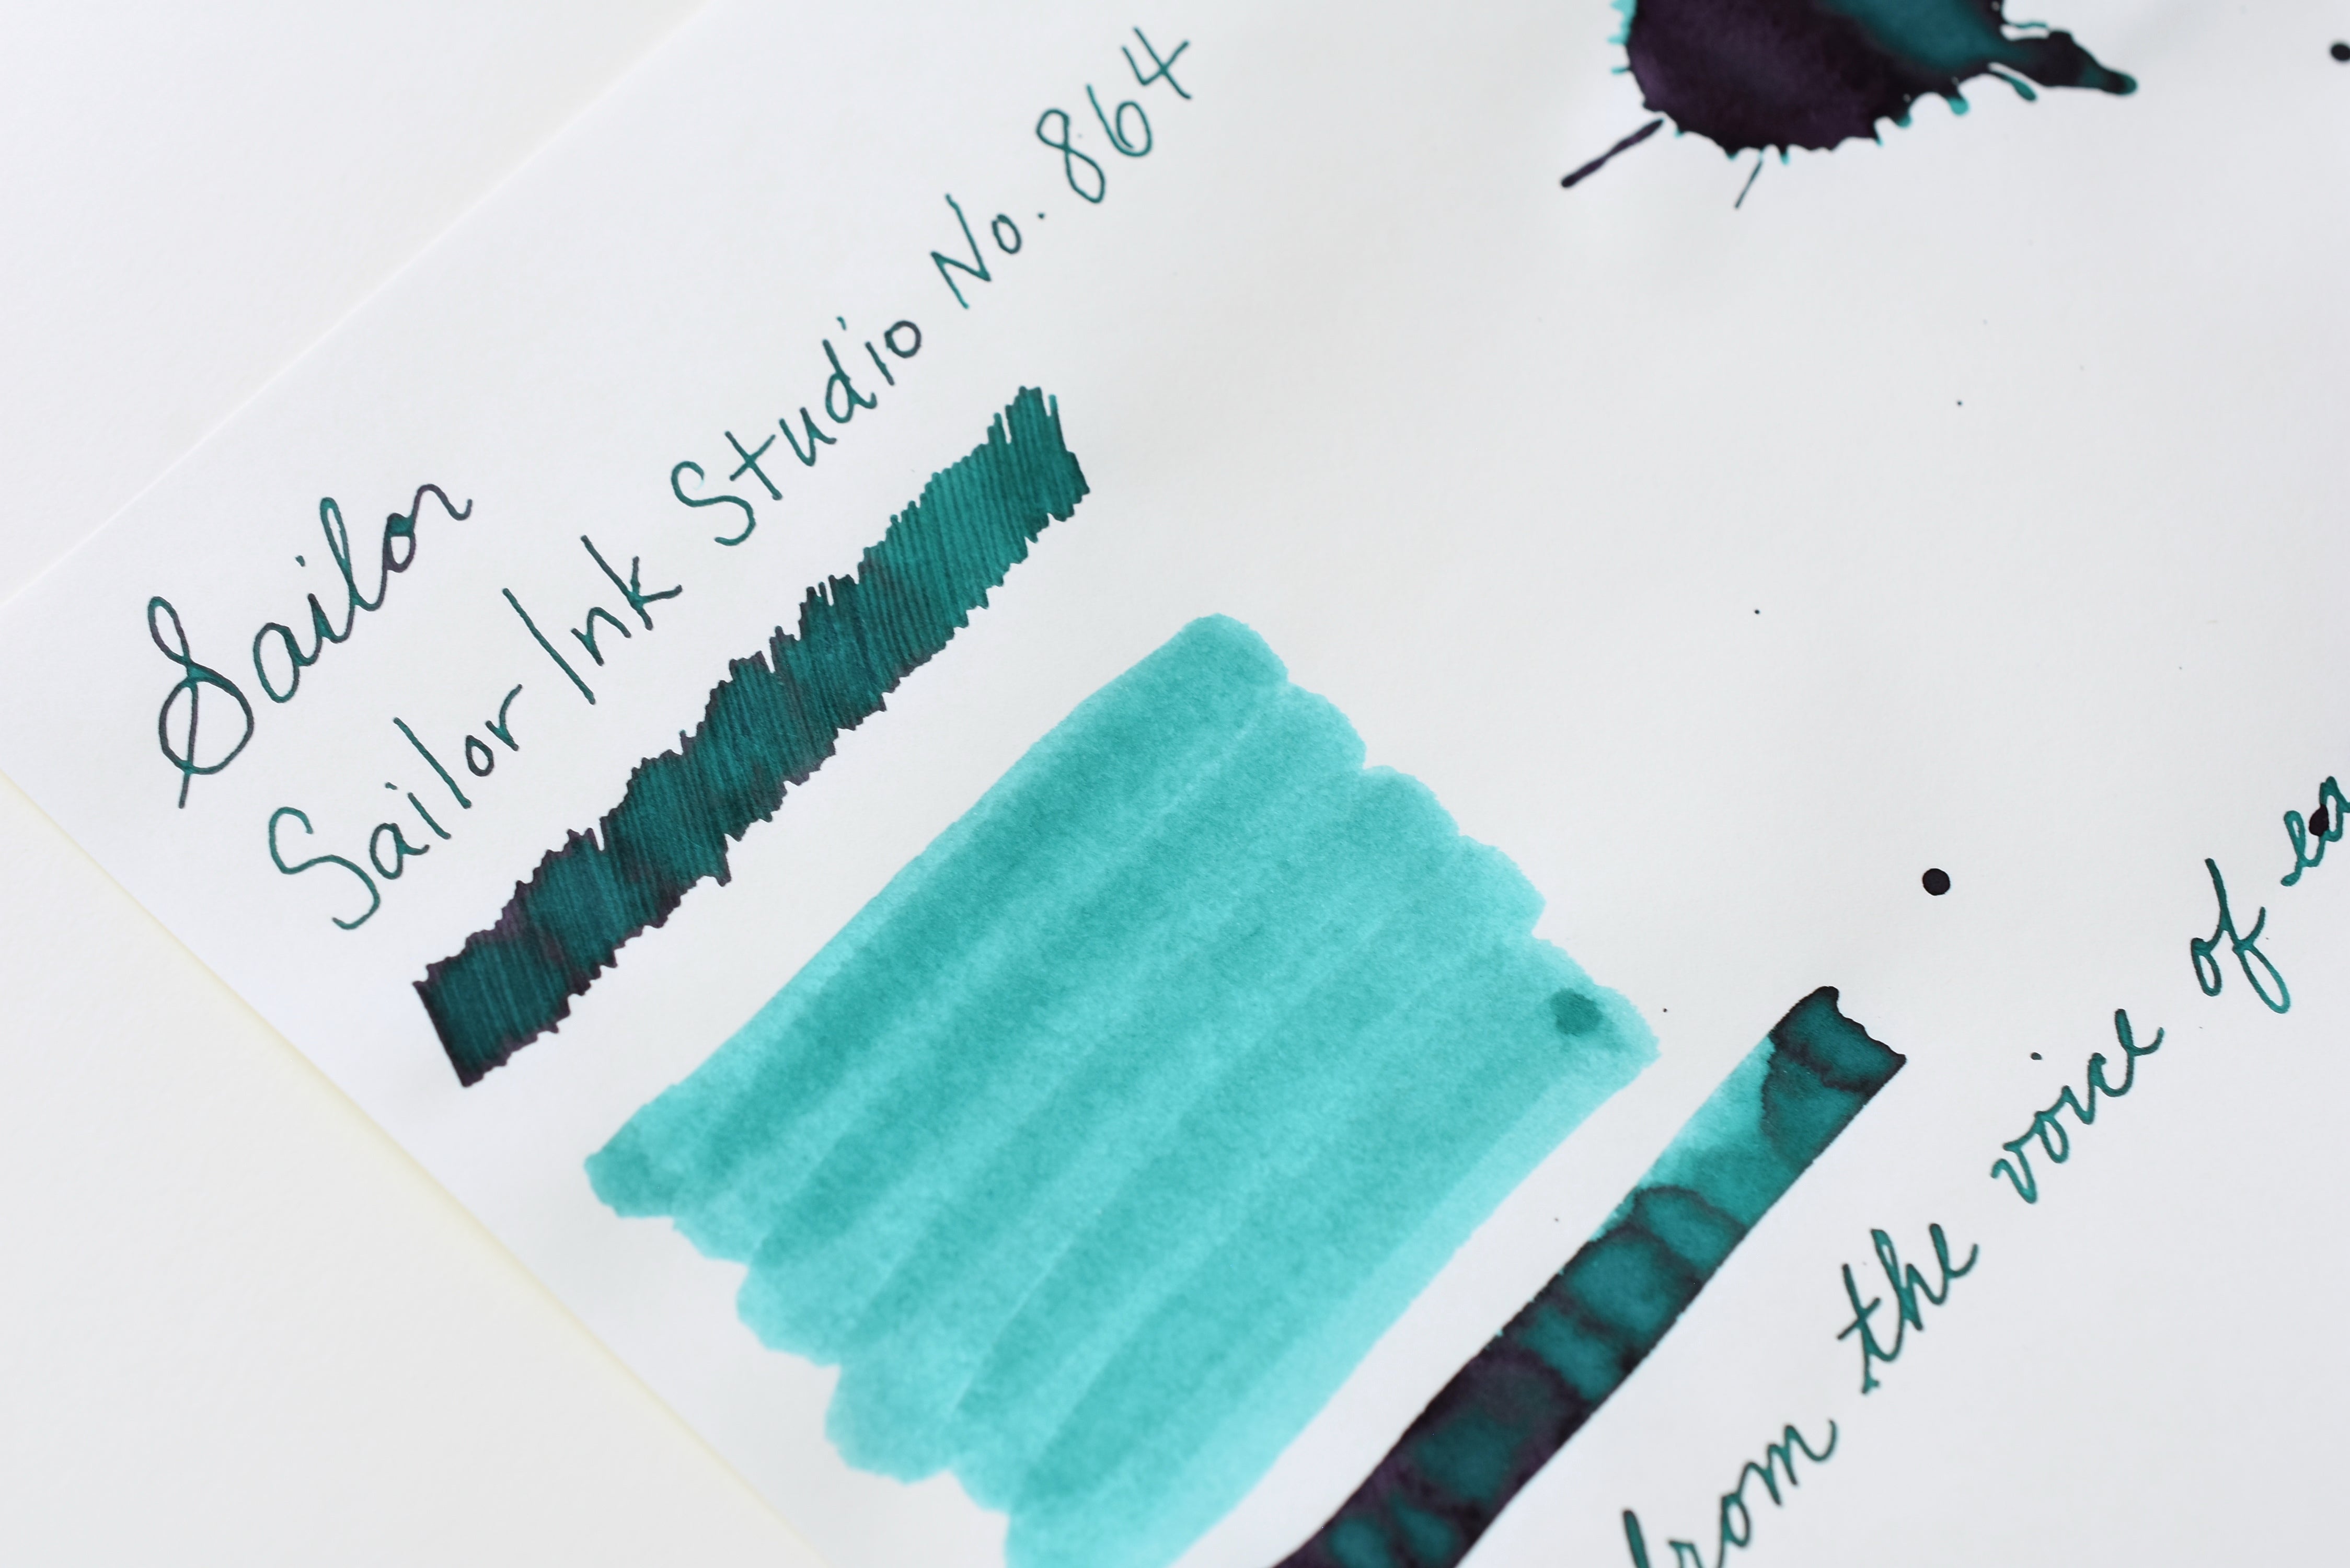 Sailor
Sailor Ink Studio No. 864
from the voice of